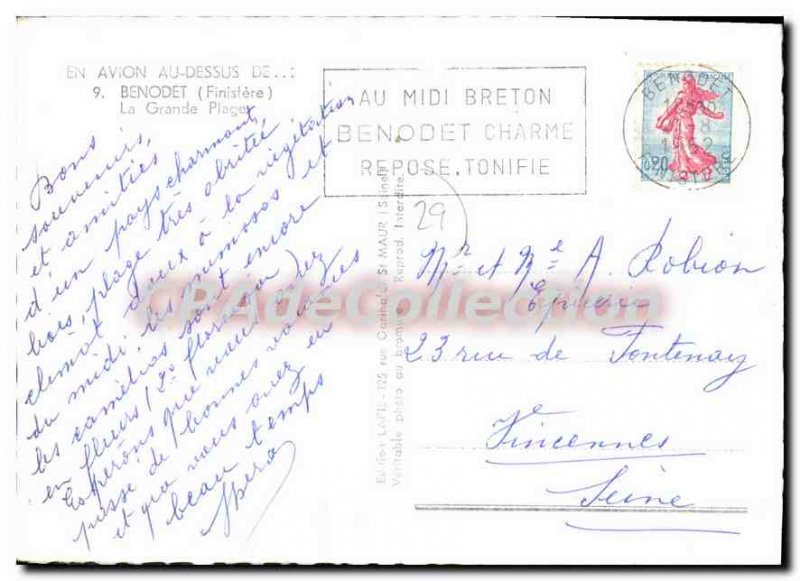 EN AVION AU-DESSUS DE...:
9. BENODET (Finistère)
La Grande Plage
Bons
souvenirs,
et amitiés
d'un pays charmant
bois, plage très abritée,
climat doux à la végétation
du midi. les mimosas et
les camélias sont encore
en fleurs
Espérons que vous avez
passé de bonnes vacances
et que vous avez eu
beau temps
AU MIDI BRETON
BENODET CHARME
REPOSE, TONIFIE
BENODET
FINISTERE
0,20
29
Editions LAPIE - 125 rue Garibaldi St MAUR (Seine)
Véritable photo au bromure - Reprod. Interdite
Mr et Me A. Robion
Epicerie
23 rue de Fontenay
Vincennes
Seine
CPAdeCollection